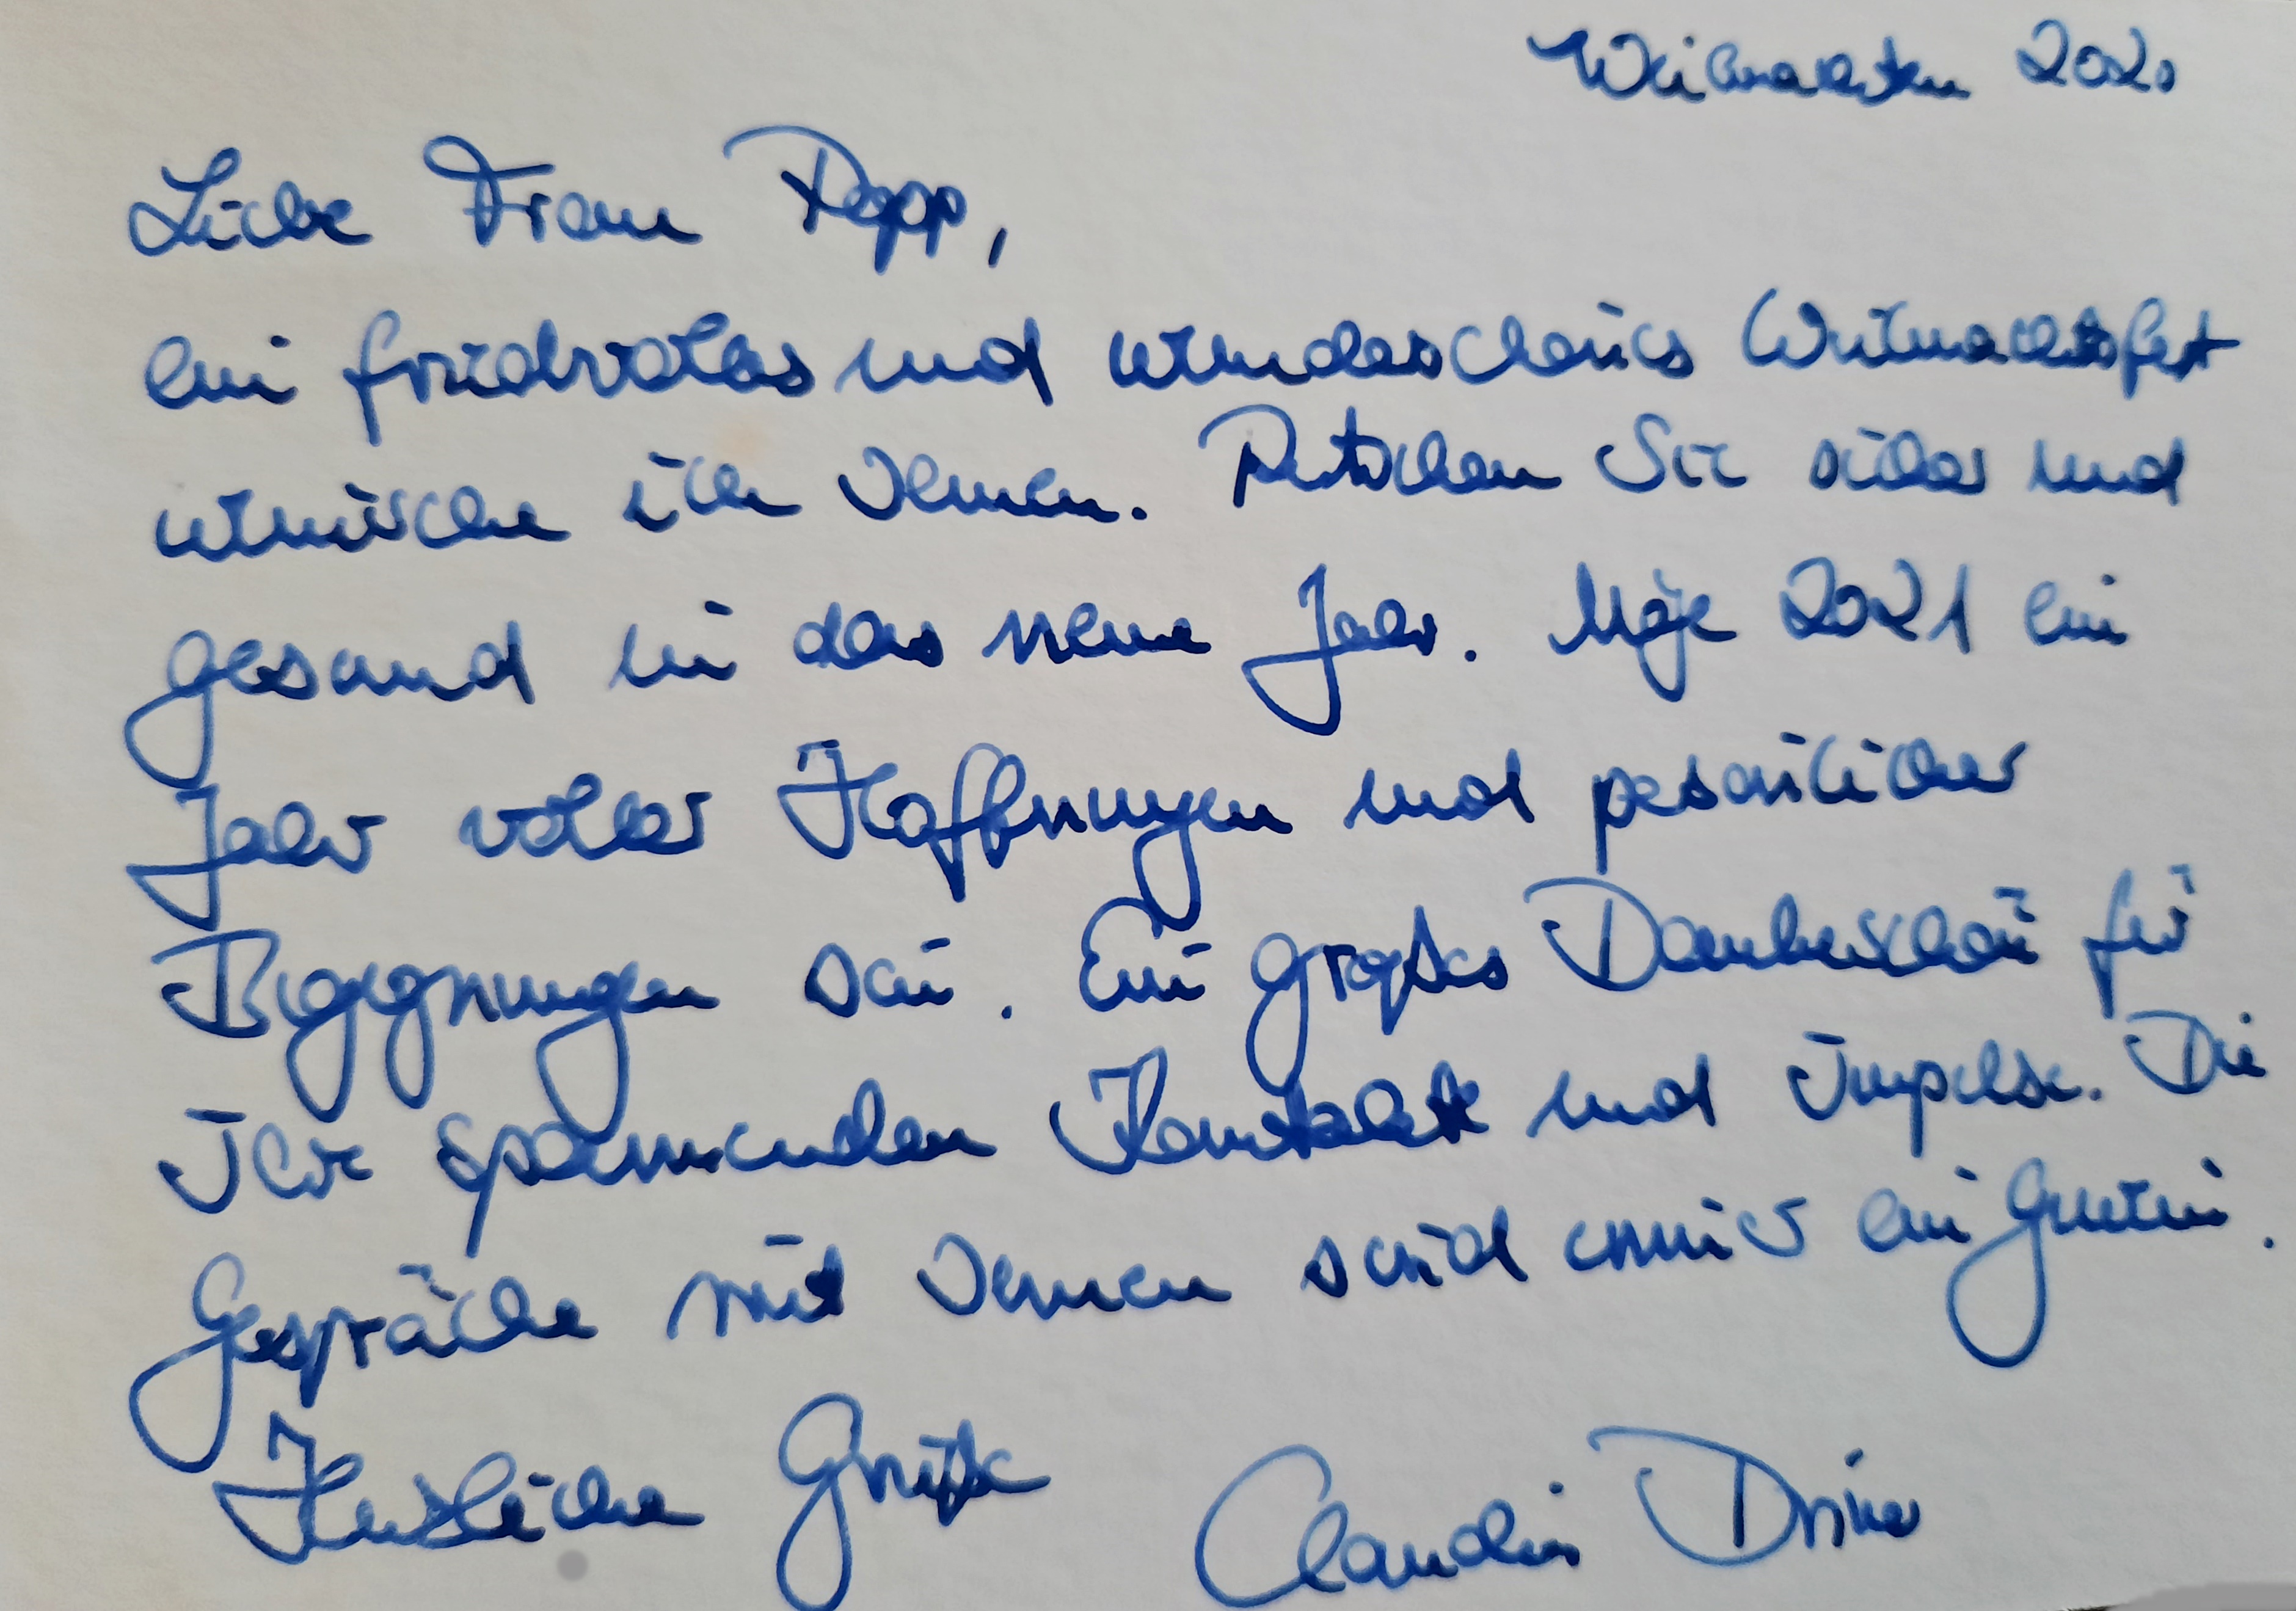 Weihnachten 2020
Liebe Frau Popp,
ein friedvolles und wunderschönes Weihnachtsfest
wünsche ich Ihnen. Rutschen Sie sicher und
gesund in das neue Jahr. Möge 2021 ein
Jahr voller Hoffnungen und persönlicher
Begegnungen sein. Ein großes Dankeschön für
Ihre spannenden Kontakte und Impulse. Die
Gespräche mit Ihnen sind immer ein Gewinn.
Herzliche Grüße Claudia